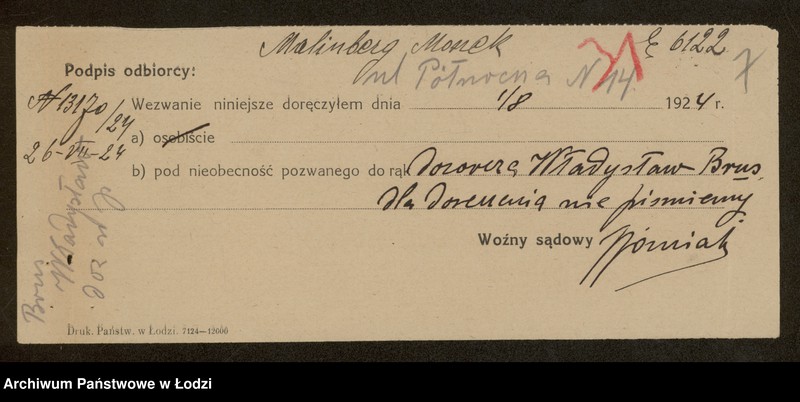 Malinberg Moszek Ę 6122
ul Północna N 14
Podpis odbiorcy:
N 13170/24
26-VII-24
Wezwanie niniejsze doręczyłem dnia 1/8 1924 r.
a) osobiście
b) pod nieobecność pozwanego do rąk Dozorcza Władysław Brus
dla doręczenia nie piśmienny
Woźny sądowy
Druk. Państw. w Łodzi. 7124—12000
Archiwum Państwowe w Łodzi